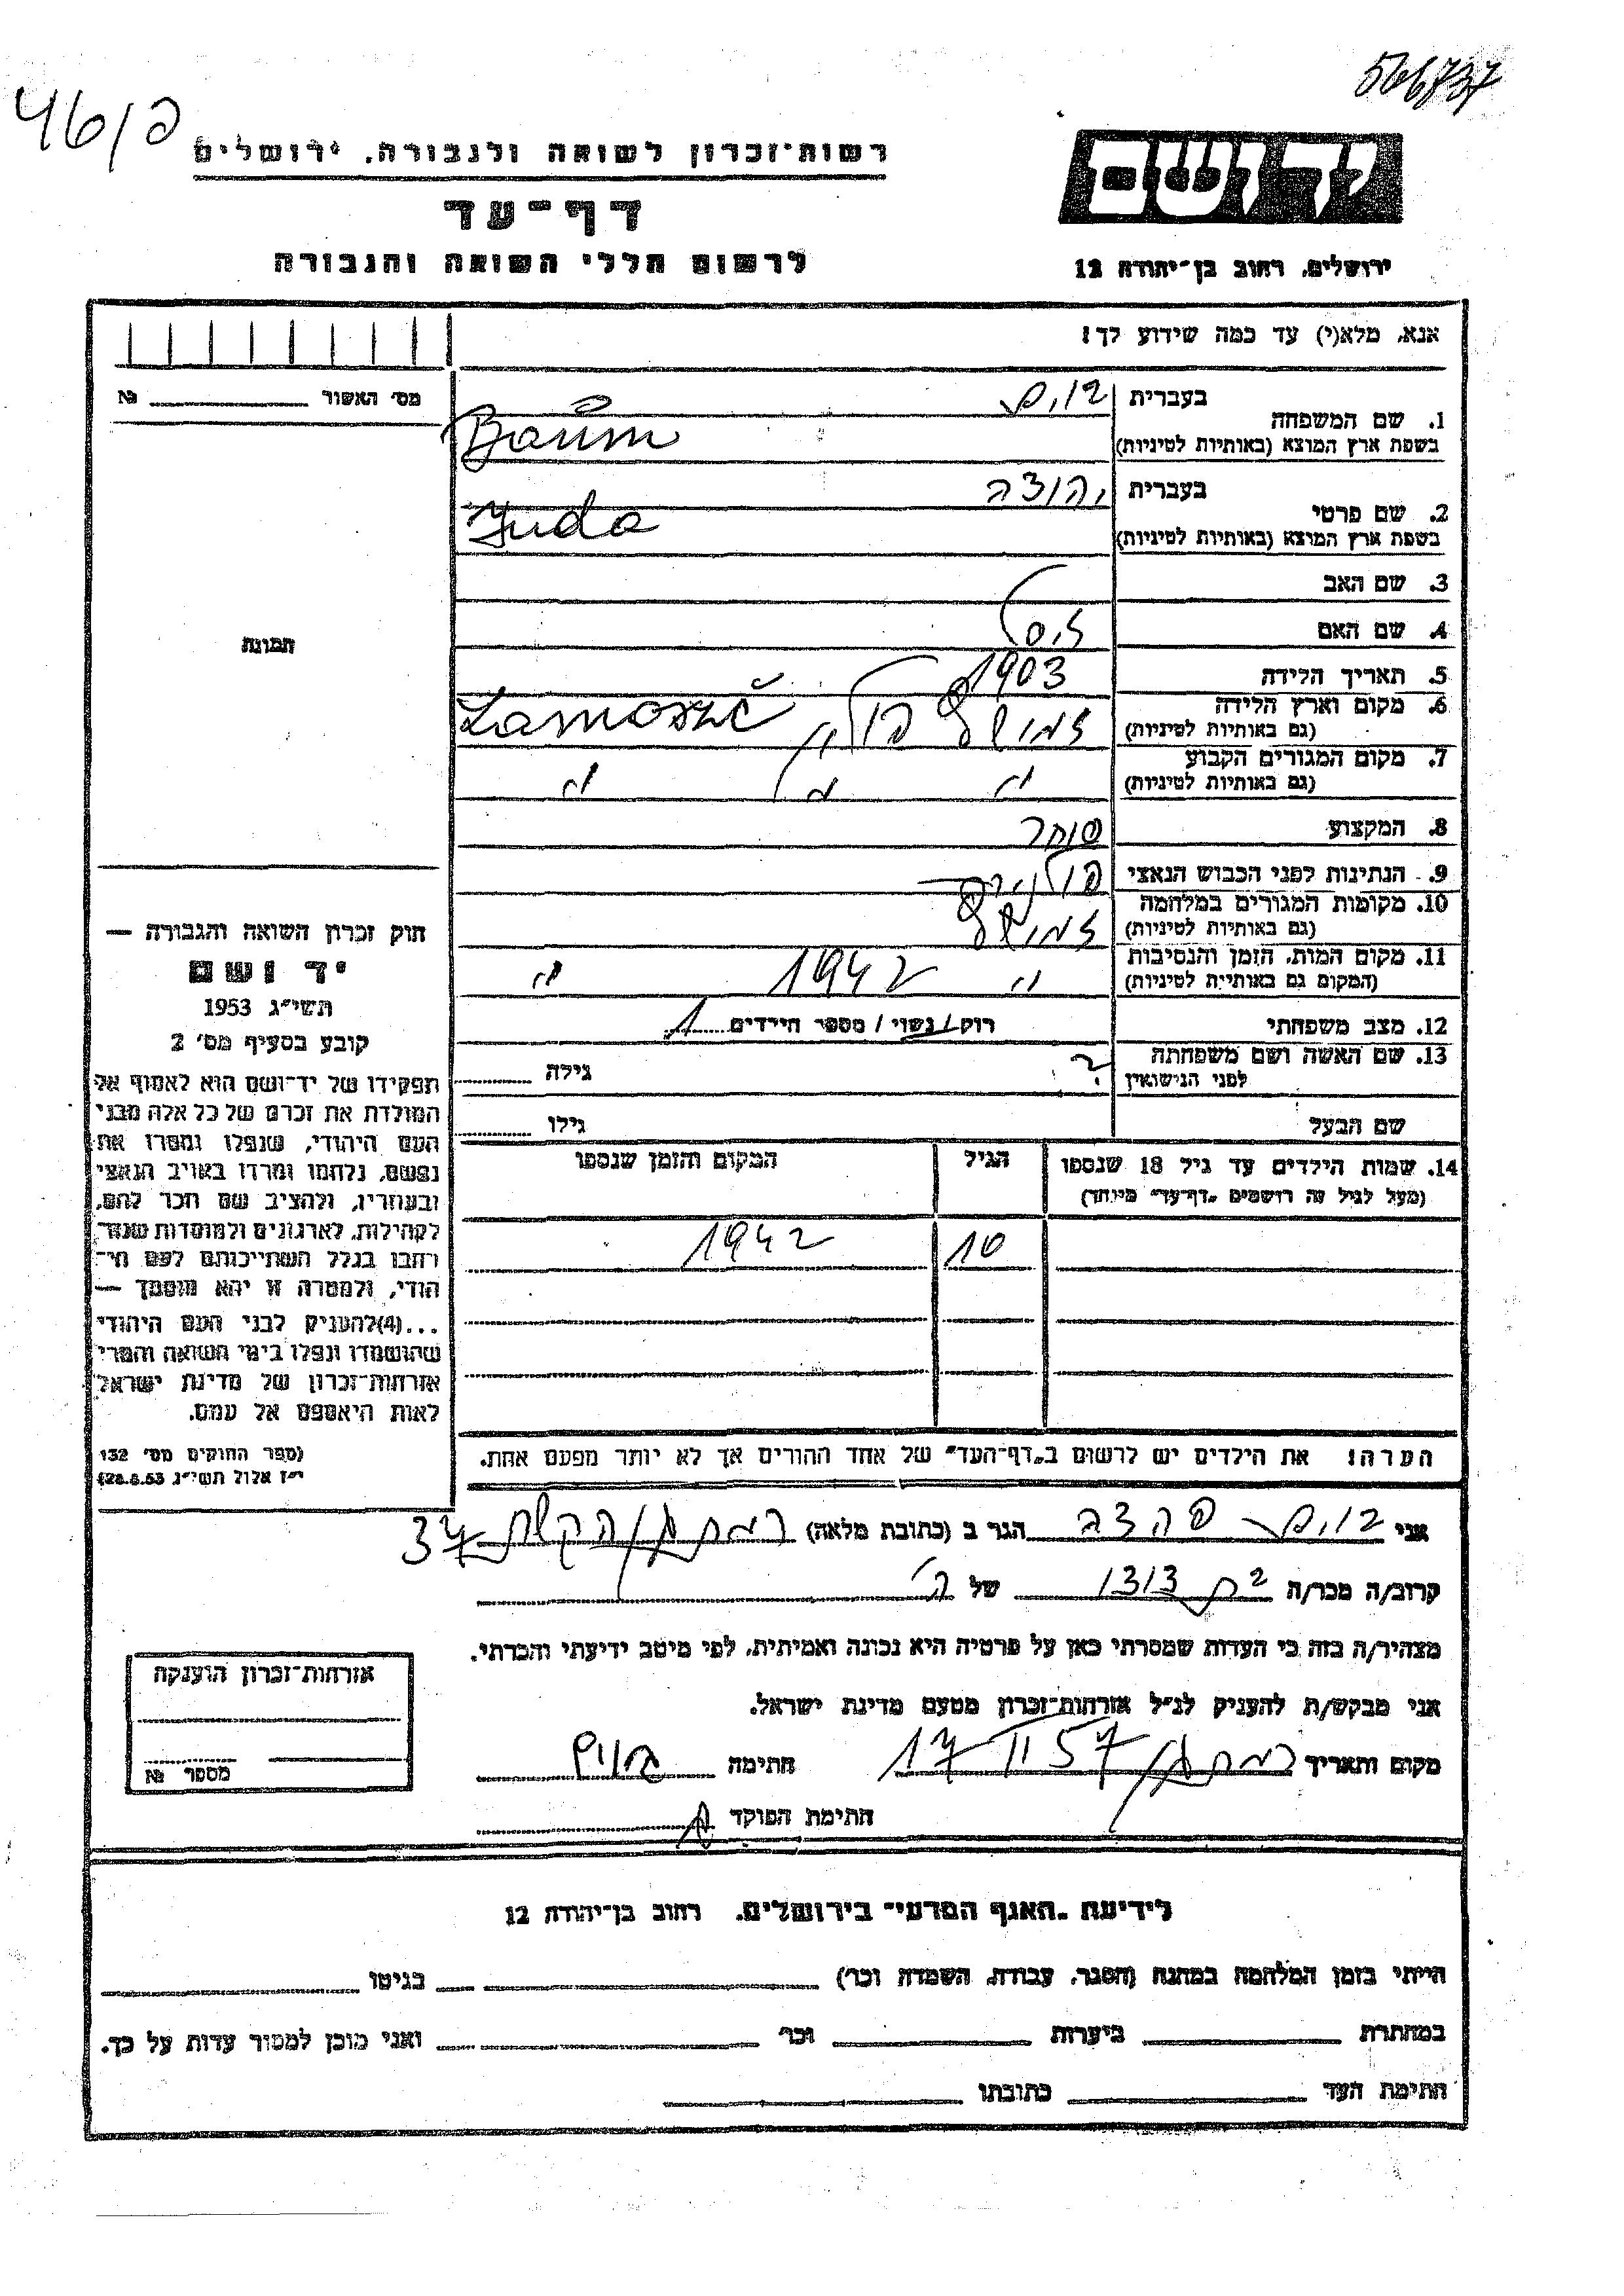 566737
46/פ
רשות־זכרון לשואה ולגבורה, ירושלים
דף־עד
לרשום חללי השואה והגבורה
יד ושם
ירושלים, רחוב בן־יהודה 12
אנא, מלא(י) עד כמה שידוע לך!
מס׳ האשור № 
1. שם המשפחה
בעברית בוים
בשפת ארץ המוצא (באותיות לטיניות) Baum
2. שם פרטי
בעברית יהודה
בשפת ארץ המוצא (באותיות לטיניות) Juda
3. שם האב
4. שם האם
5. תאריך הלידה 1903
6. מקום וארץ הלידה
(גם באותיות לטיניות) זמושץ פולין Zamość
7. מקום המגורים הקבוע
(גם באותיות לטיניות) " "
8. המקצוע סוחר
9. הנתינות לפני הכבוש הנאצי פולנית
10. מקומות המגורים במלחמה
(גם באותיות לטיניות) זמושץ
11. מקום המות, הזמן והנסיבות
(המקום גם באותיות לטיניות) " 1942 "
12. מצב משפחתי רוק/נשוי/ מספר הילדים 1
13. שם האשה ושם משפחתה
לפני הנישואין ? גילה
שם הבעל גילו
תמונה
חוק זכרון השואה והגבורה —
יד ושם
תשי״ג 1953
קובע בסעיף מס׳ 2
תפקידו של יד־ושם הוא לאסוף אל
המולדת את זכרם של כל אלה מבני
העם היהודי, שנפלו ומסרו את
נפשם, נלחמו ומרדו באויב הנאצי
ובעוזריו, ולהציב שם וזכר להם,
לקהילות, לארגונים ולמוסדות שנח־
רבו בגלל השתייכותם לעם הי־
הודי, ולמטרה זו יהא מוסמך —
...(4)להעניק לבני העם היהודי
שהושמדו ונפלו בימי השואה והמרי
אזרחות־זכרון של מדינת ישראל
לאות היאספם אל עמם.
(ספר החוקים מס׳ 132
י״ז אלול תשי״ג 28.8.53)
14. שמות הילדים עד גיל 18 שנספו
(מעל לגיל זה רושמים „דף־עד” מיוחד)
הגיל
המקום והזמן שנספו
10 1942
הערה: את הילדים יש לרשום ב„דף־העד” של אחד ההורים אך לא יותר מפעם אחת.
אני בוים הגר ב (כתובת מלאה) רמת גן/ 34
קרוב/ה מכר/ה בת דוד של הנ״ל
מצהיר/ה בזה כי העדות שמסרתי כאן על פרטיה היא נכונה ואמיתית, לפי מיטב ידיעתי והכרתי.
אני מבקש/ת להעניק לנ״ל אזרחות־זכרון מטעם מדינת ישראל.
מקום ותאריך רמת גן/ 17 II 57 חתימה בוים
חתימת הפוקד
אזרחות־זכרון הוענקה
מספר №
לידיעת „האגף המדעי” בירושלים, רחוב בן־יהודה 12
הייתי בזמן המלחמה במחנה (הסגר, עבודה, השמדה וכו׳) בגיטו
במחתרת ביערות וכו׳ ואני מוכן למסור עדות על כך.
חתימת העד כתובתו